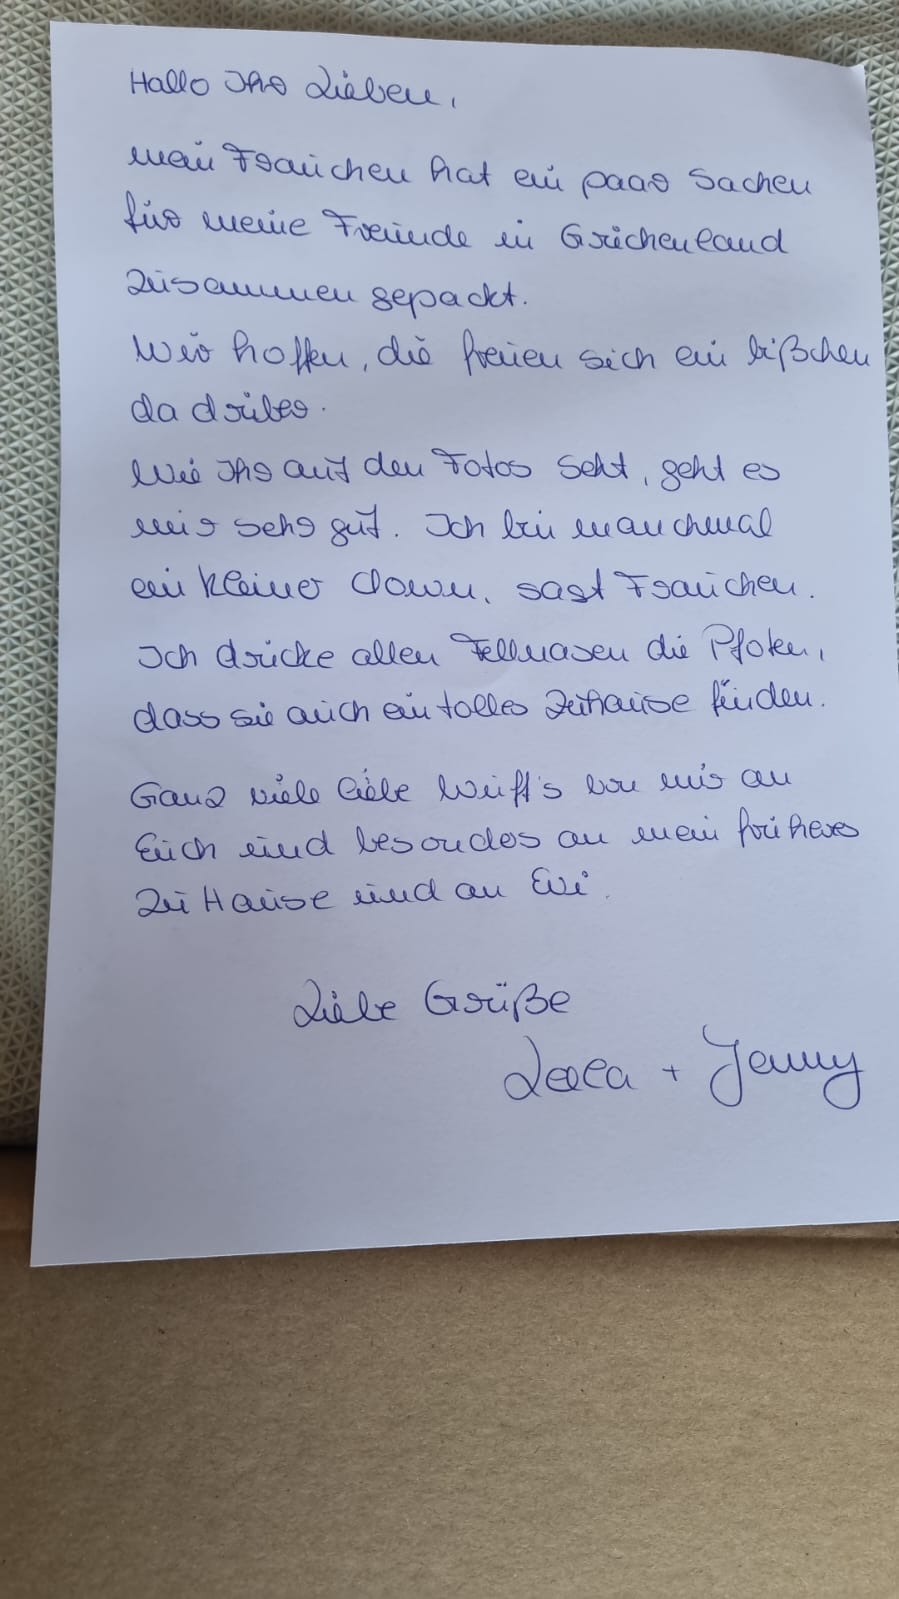 Hallo Ihr Lieben,
mein Frauchen hat ein paar Sachen
für meine Freunde in Grichenland
zusammen gepackt.
Wir hoffen, die freuen sich ein bißchen
da drüber.
Wie Ihr auf den Fotos seht, geht es
mir sehr gut. Ich bin manchmal
ein kleiner Clown, sagt Frauchen.
Ich drücke allen Fellnasen die Pfoten,
dass sie auch ein tolles Zuhause finden.
Ganz viele liebe Wuff's von mir an
Euch und besonders an mein früheres
Zu Hause und an Evi.
Liebe Grüße
+ Jenny